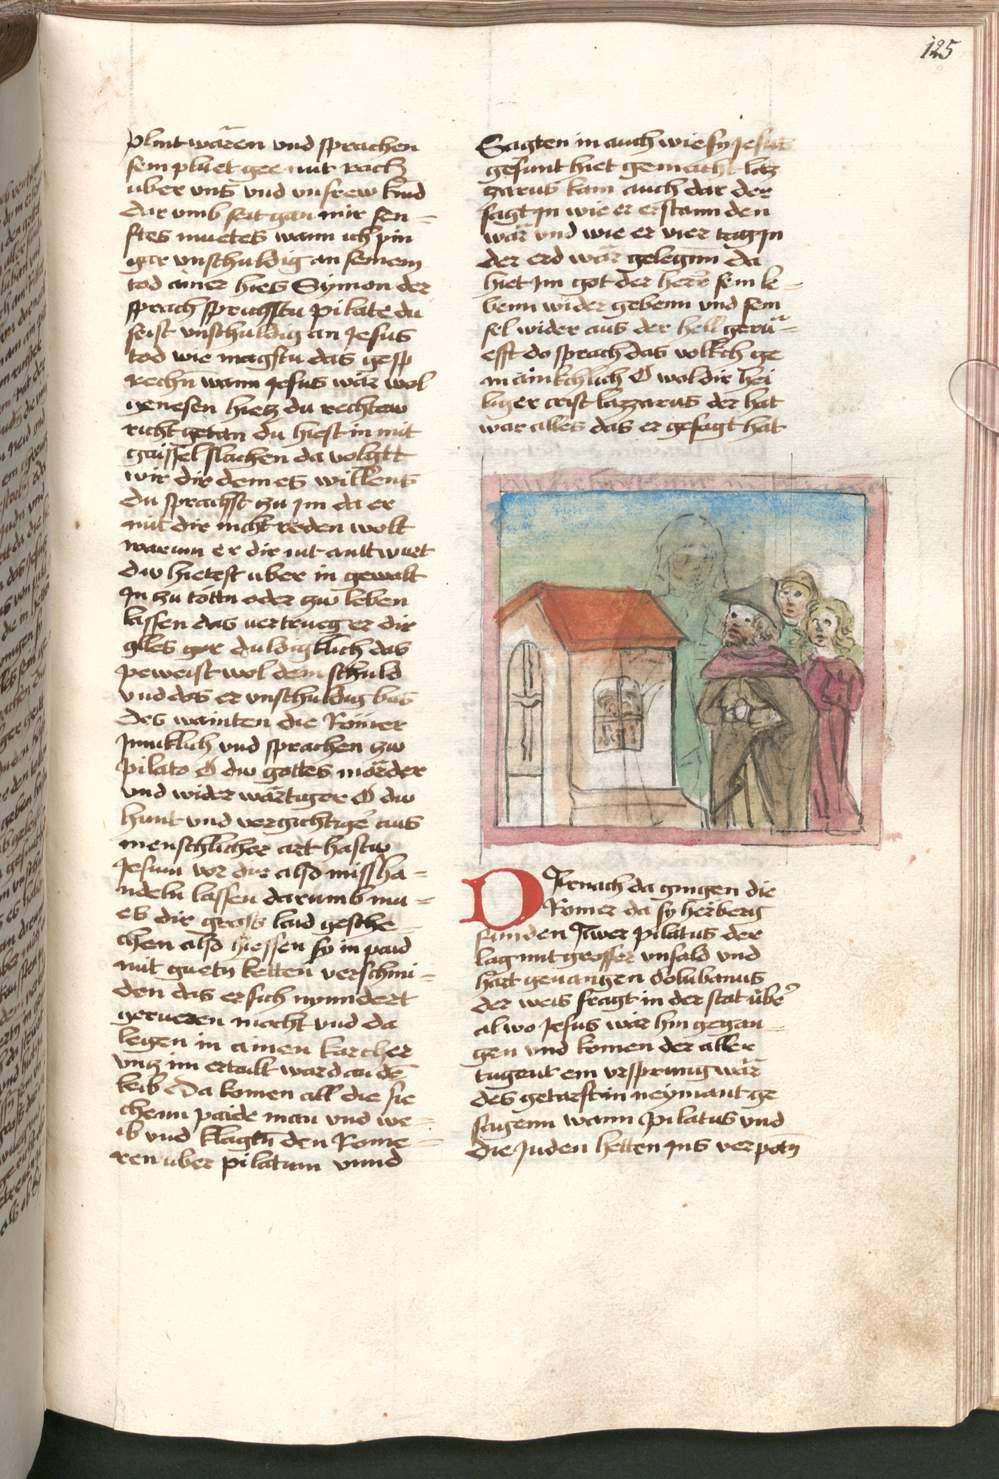 125
plint wären vnd sprachen
sein pluet gee mit rach
über vns vnd vnsrew kind
dar vmb seit gan mir sen=
ftes muetes wann ich pin
gar vnschuldig an seinem
tod ainer hies Symon der
sprach sprichstu pilate du
seist vnschuldig an Jesus
tod wie magstu das gesp
rechn wann Jesus wär wol
genesen hietz du rechtew
richt getan du hiest in mit
gaissel slachen da volgtt
wir dir dem es willens
du sprachst zu Im da er
mit dir nicht reden wolt
warum er dir nit anttwurt
dw hietest über in gewalt
In zu töttn oder zw leben
lassen das vertrueg er dir
alles gar duldigklich das
peweist wol dein schuld
vnd das er vnschuldig was
des wainten die Römer
Inniklich vnd sprachen zw
pilato O dw gottes mörder
vnd wider wärtiger O dw
hunt vnd vergichtiger aus
menschlicher art hastw
Jesum vor dir also missha=
ndeln lassen darumb mu=
es dir gross laid gesche=
chen also hiessen sy in paid
mit guetn ketten verschmi=
den das er sich nynndert
gerueren mocht vnd da
legen in ainen karcher
vntz im ertailt ward an dē
leib Da komen all die sie
chenn paide man vnd we=
ib vnd klagtn den Rome=
ren über pilatum vnnd
Sagten in auch wie sy Jesus
gesunt hiet gemacht laz
zarus kam auch dar der
sagt In wie er erstannden
wär vnd wie er vier tag In
der erd wär gelegnn da
hiet Im got der herr sein le=
benn wider gebenn vnd sein
sel wider aus der hell gerü=
efft do sprach das volkch ge
mainkchlich O wol dir hei
liger crist lazzarus der hat
war alles das er gesagt hat
Darnach da gingen die
Romer da sy herberg
funden Jwer pilatus der
lag mit grosser vnfald vnd
hart geuangen Volubanus
der weis fragt in der stat über
al wo Jesus wär hin gegan=
gen vnd komen der aller
tugent ein vrsprung wär
des getarst in neymant ge
sagenn wann Pilatus vnd
die Juden hetten Ins verpotn